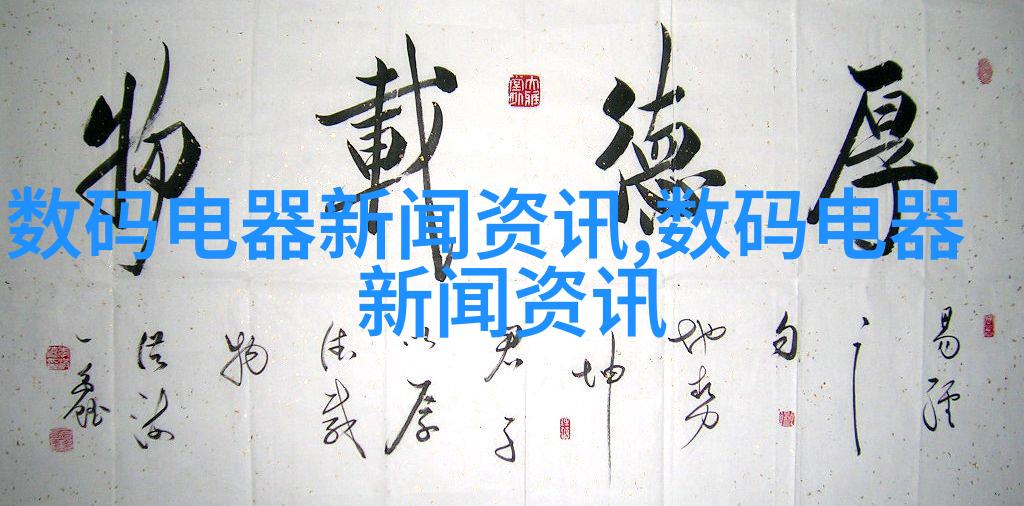 厚德載物
数码电器新闻资讯,数码电器
新闻资讯
易经
之一
句
地势
坤
君子
以厚
德载
物